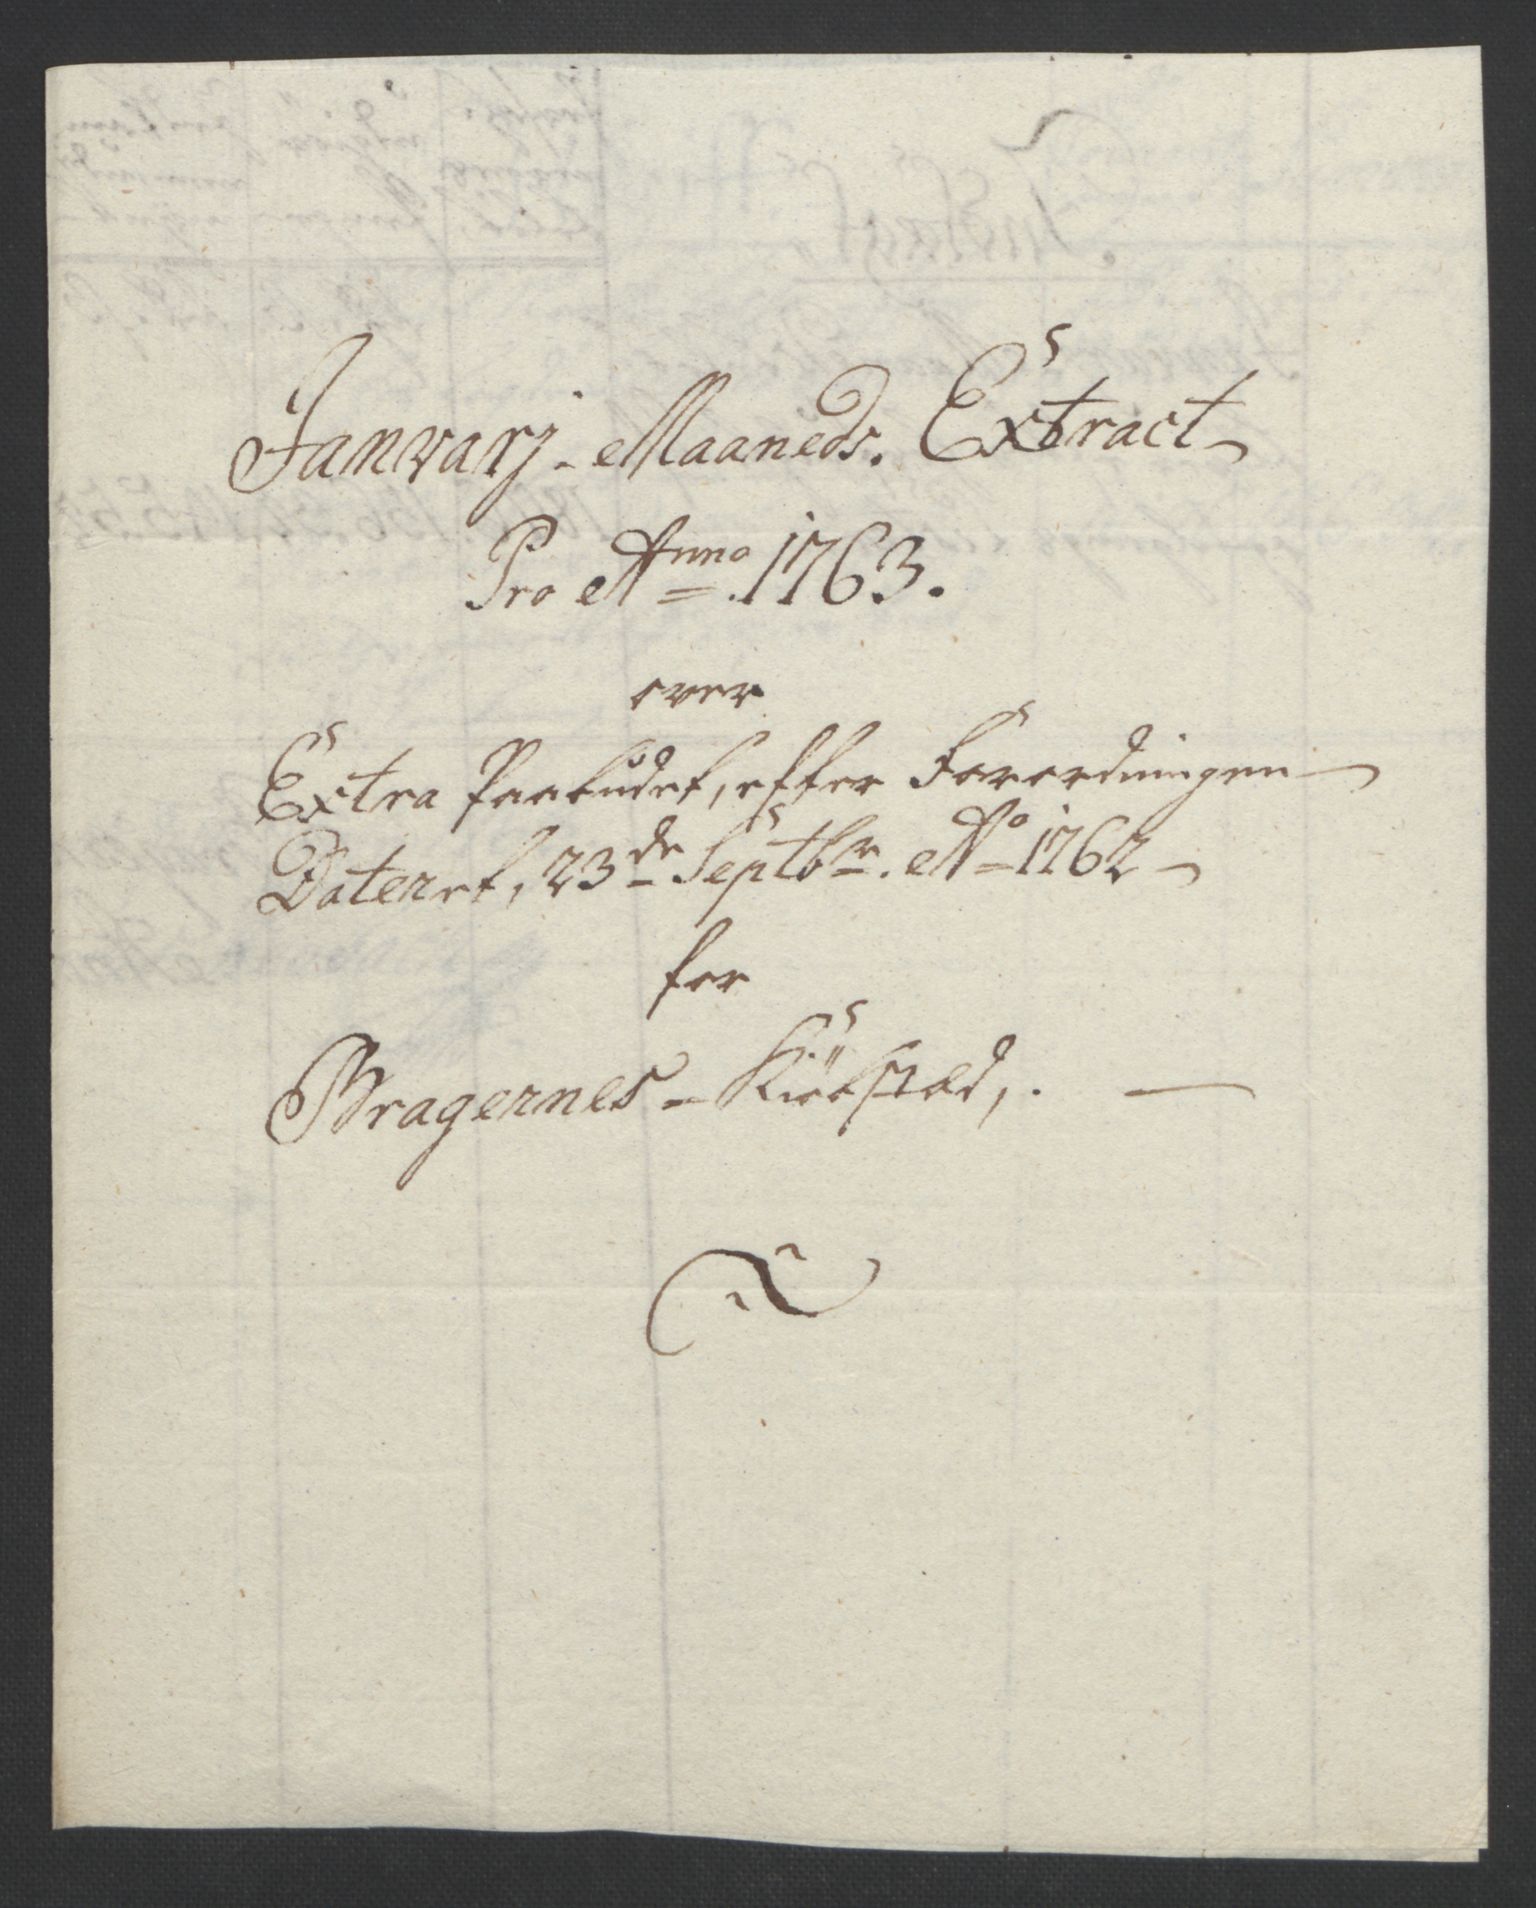 Janvarj - Maaneds. Extract
Pro Anno 1763.
over
Extra Paabudet, efter Forordningen
Dateret, 23de Septbr. Ao 1762
for
Bragernes - Kiöbstæd,.